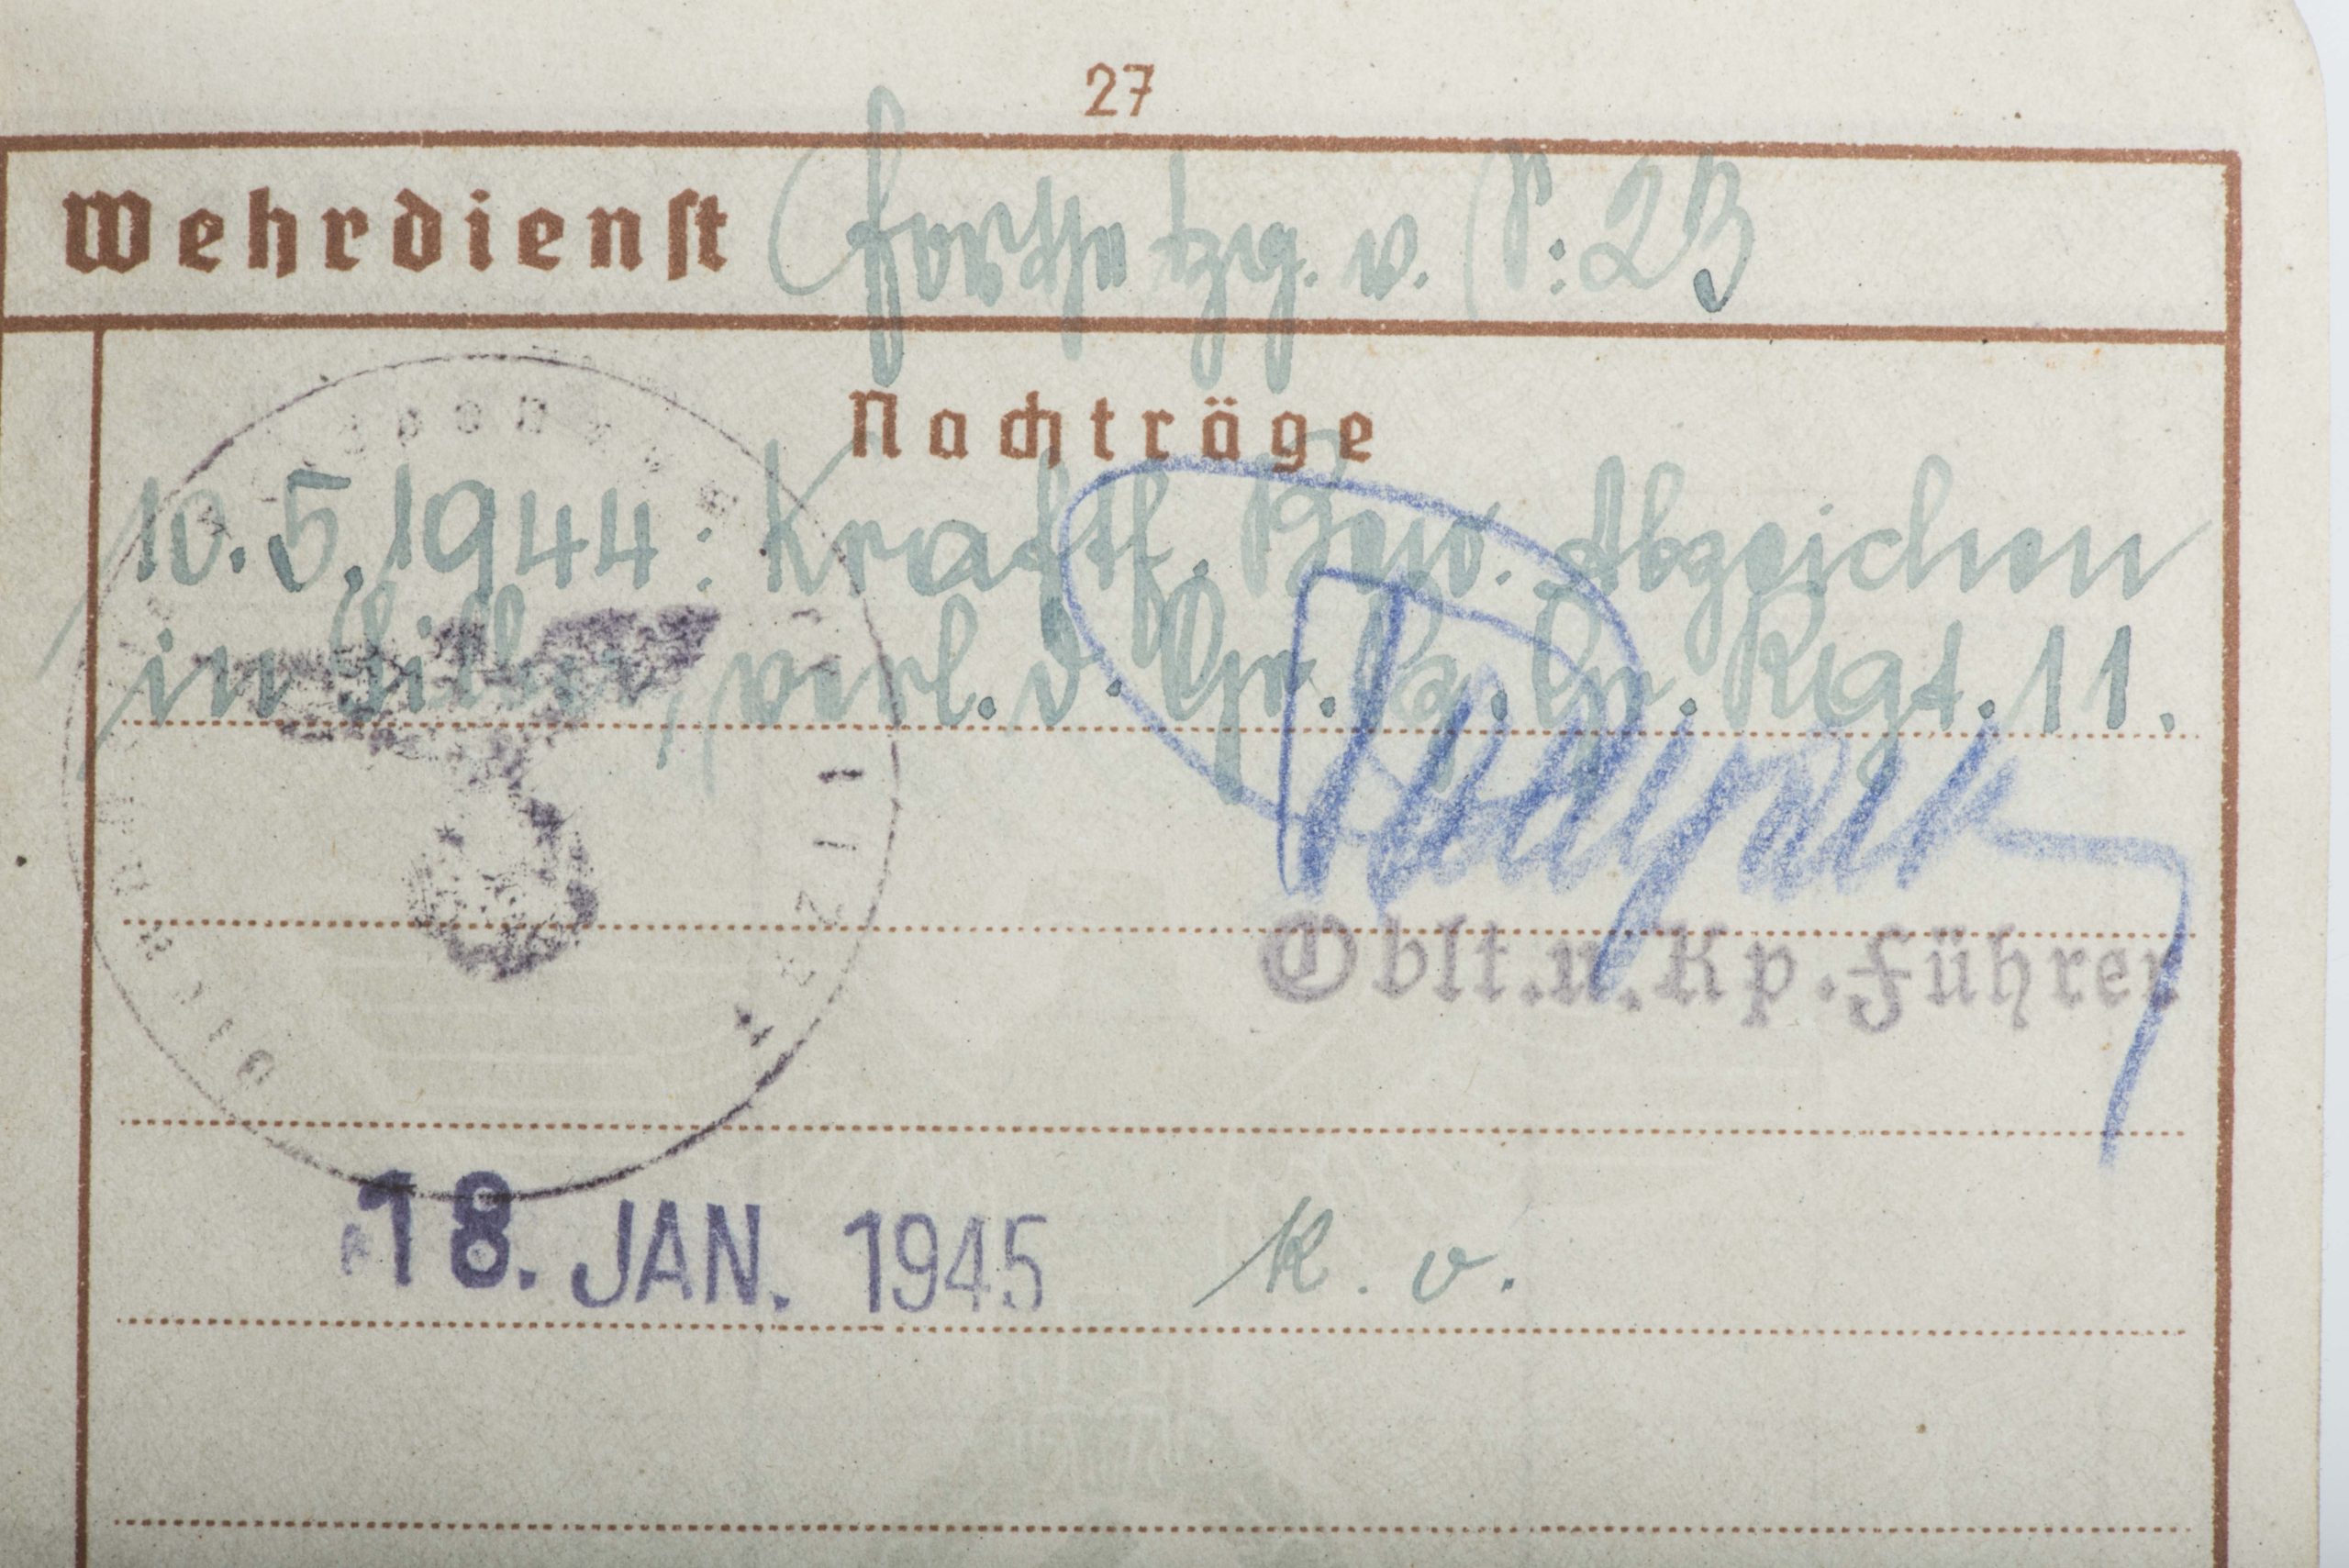 27
Wehrdienst (Fortsetzg. v. S. 23
Nachträge
10.5.1944: Kraftf. Bew. Abzeichen
in Silber, verl. d. Gr. Rgt. 11.
Oblt. u. Kp. Führer
18. JAN. 1945 k. v.